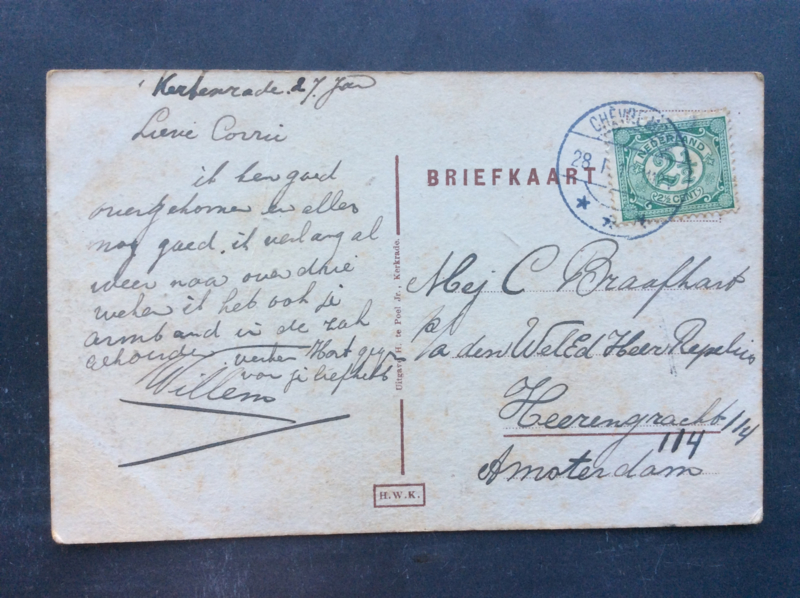 Kerkenrade 27 Jan
Lieve Corrie
ik ben goed
overgekomen en alles
nog goed. ik verlang al
weer naar over drie
weken ik heb ook je
armband in de zak
gehouden verken Hart
van je liefheb
Willem
Uitgave H. te Poel Jr., Kerkrade.
H.W.K.
BRIEFKAART
CHEVREM
28.1
NEDERLAND
2½
2½ CENT
Mej C Braafhart
p/a den WelEd Heer Repelius
Heerengracht 114
114
Amsterdam